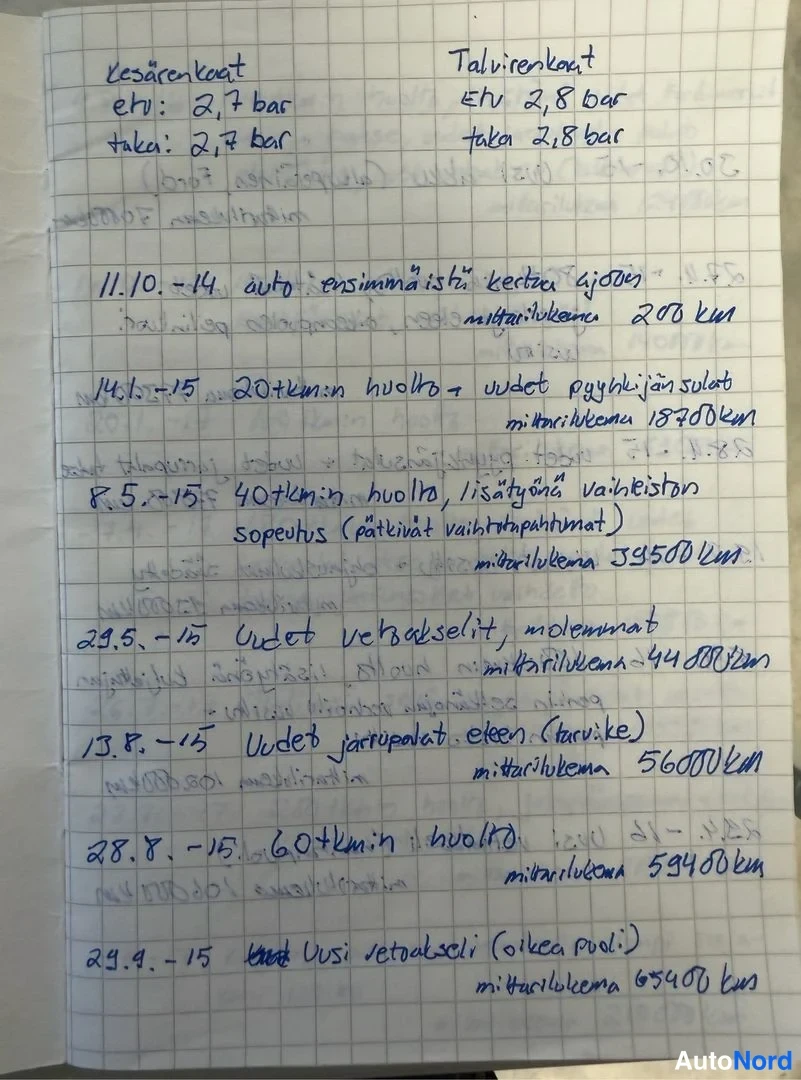 Kesärenkaat
etu: 2,7 bar
taka: 2,7 bar
Talvirenkaat
Etu 2,8 bar
taka 2,8 bar
11.10.-14 auto ensimmäistä kertaa ajoon
mittarilukema 200 km
14.1.-15 20tkm:n huolto + uudet pyyhkijän sulat
mittarilukema 18700km
8.5.-15 40tkm:n huolto, lisätyönä vaihteiston
sopeutus (pätkivät vaihtotapahtumat)
mittarilukema 39500km
29.5.-15 Uudet vetoakselit, molemmat
mittarilukema 44000km
13.8.-15 Uudet jarrupalat eteen (tarvike)
mittarilukema 56000km
28.8.-15 60tkm:n huolto
mittarilukema 59400km
29.9.-15 Uusi vetoakseli (oikea puoli)
mittarilukema 65400 km
AutoNord